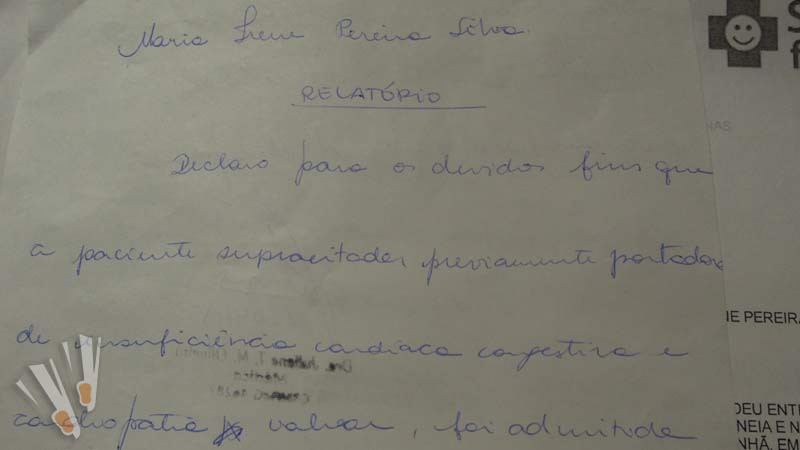 Maria Irene Pereira Silva
RELATÓRIO
Declaro para os devidos fins que
a paciente supracitada, previamente portadora
de insuficiência cardíaca congestiva e
cardiopatia valvar, foi admitida
S
f
NAS
NE PEREIRA
DEU ENT
NEIA E N
NHÃ, EM